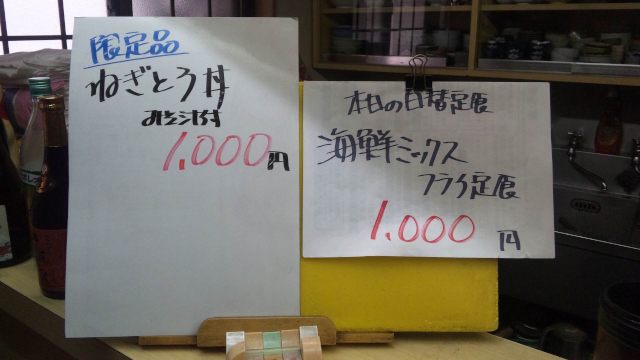 限定品
ねぎとろ丼
みそ汁付
1,000円
本日の日替定食
海鮮ミックス
フライ定食
1.000円